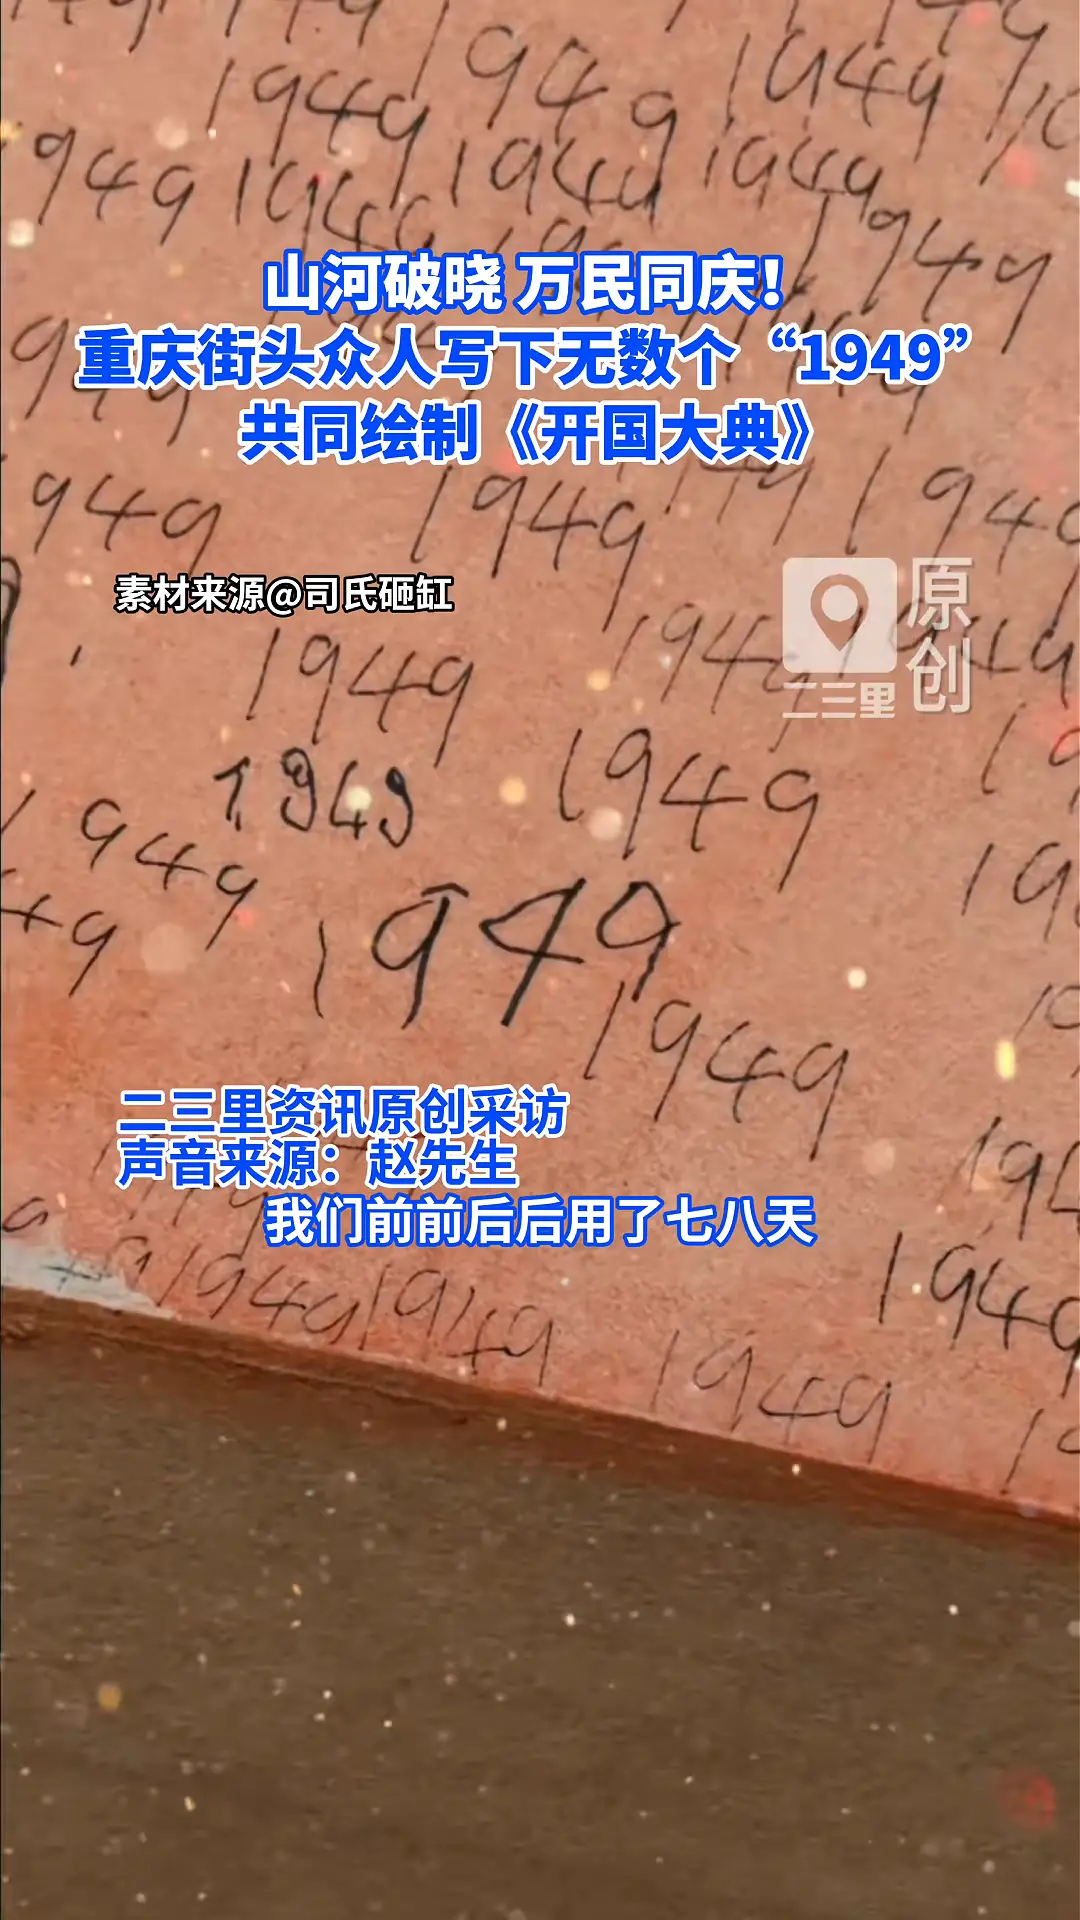 1949
1949
1949
1949
1949
1949
1949
1949
山河破晓 万民同庆！
重庆街头众人写下无数个“1949”
共同绘制《开国大典》
949
1949
1949
素材来源@司氏砸缸
原创
二三里
1949
1949
1949
1949
949
1949
1949
二三里资讯原创采访
声音来源：赵先生
我们前前后后用了七八天
1949
1949
1949
1949